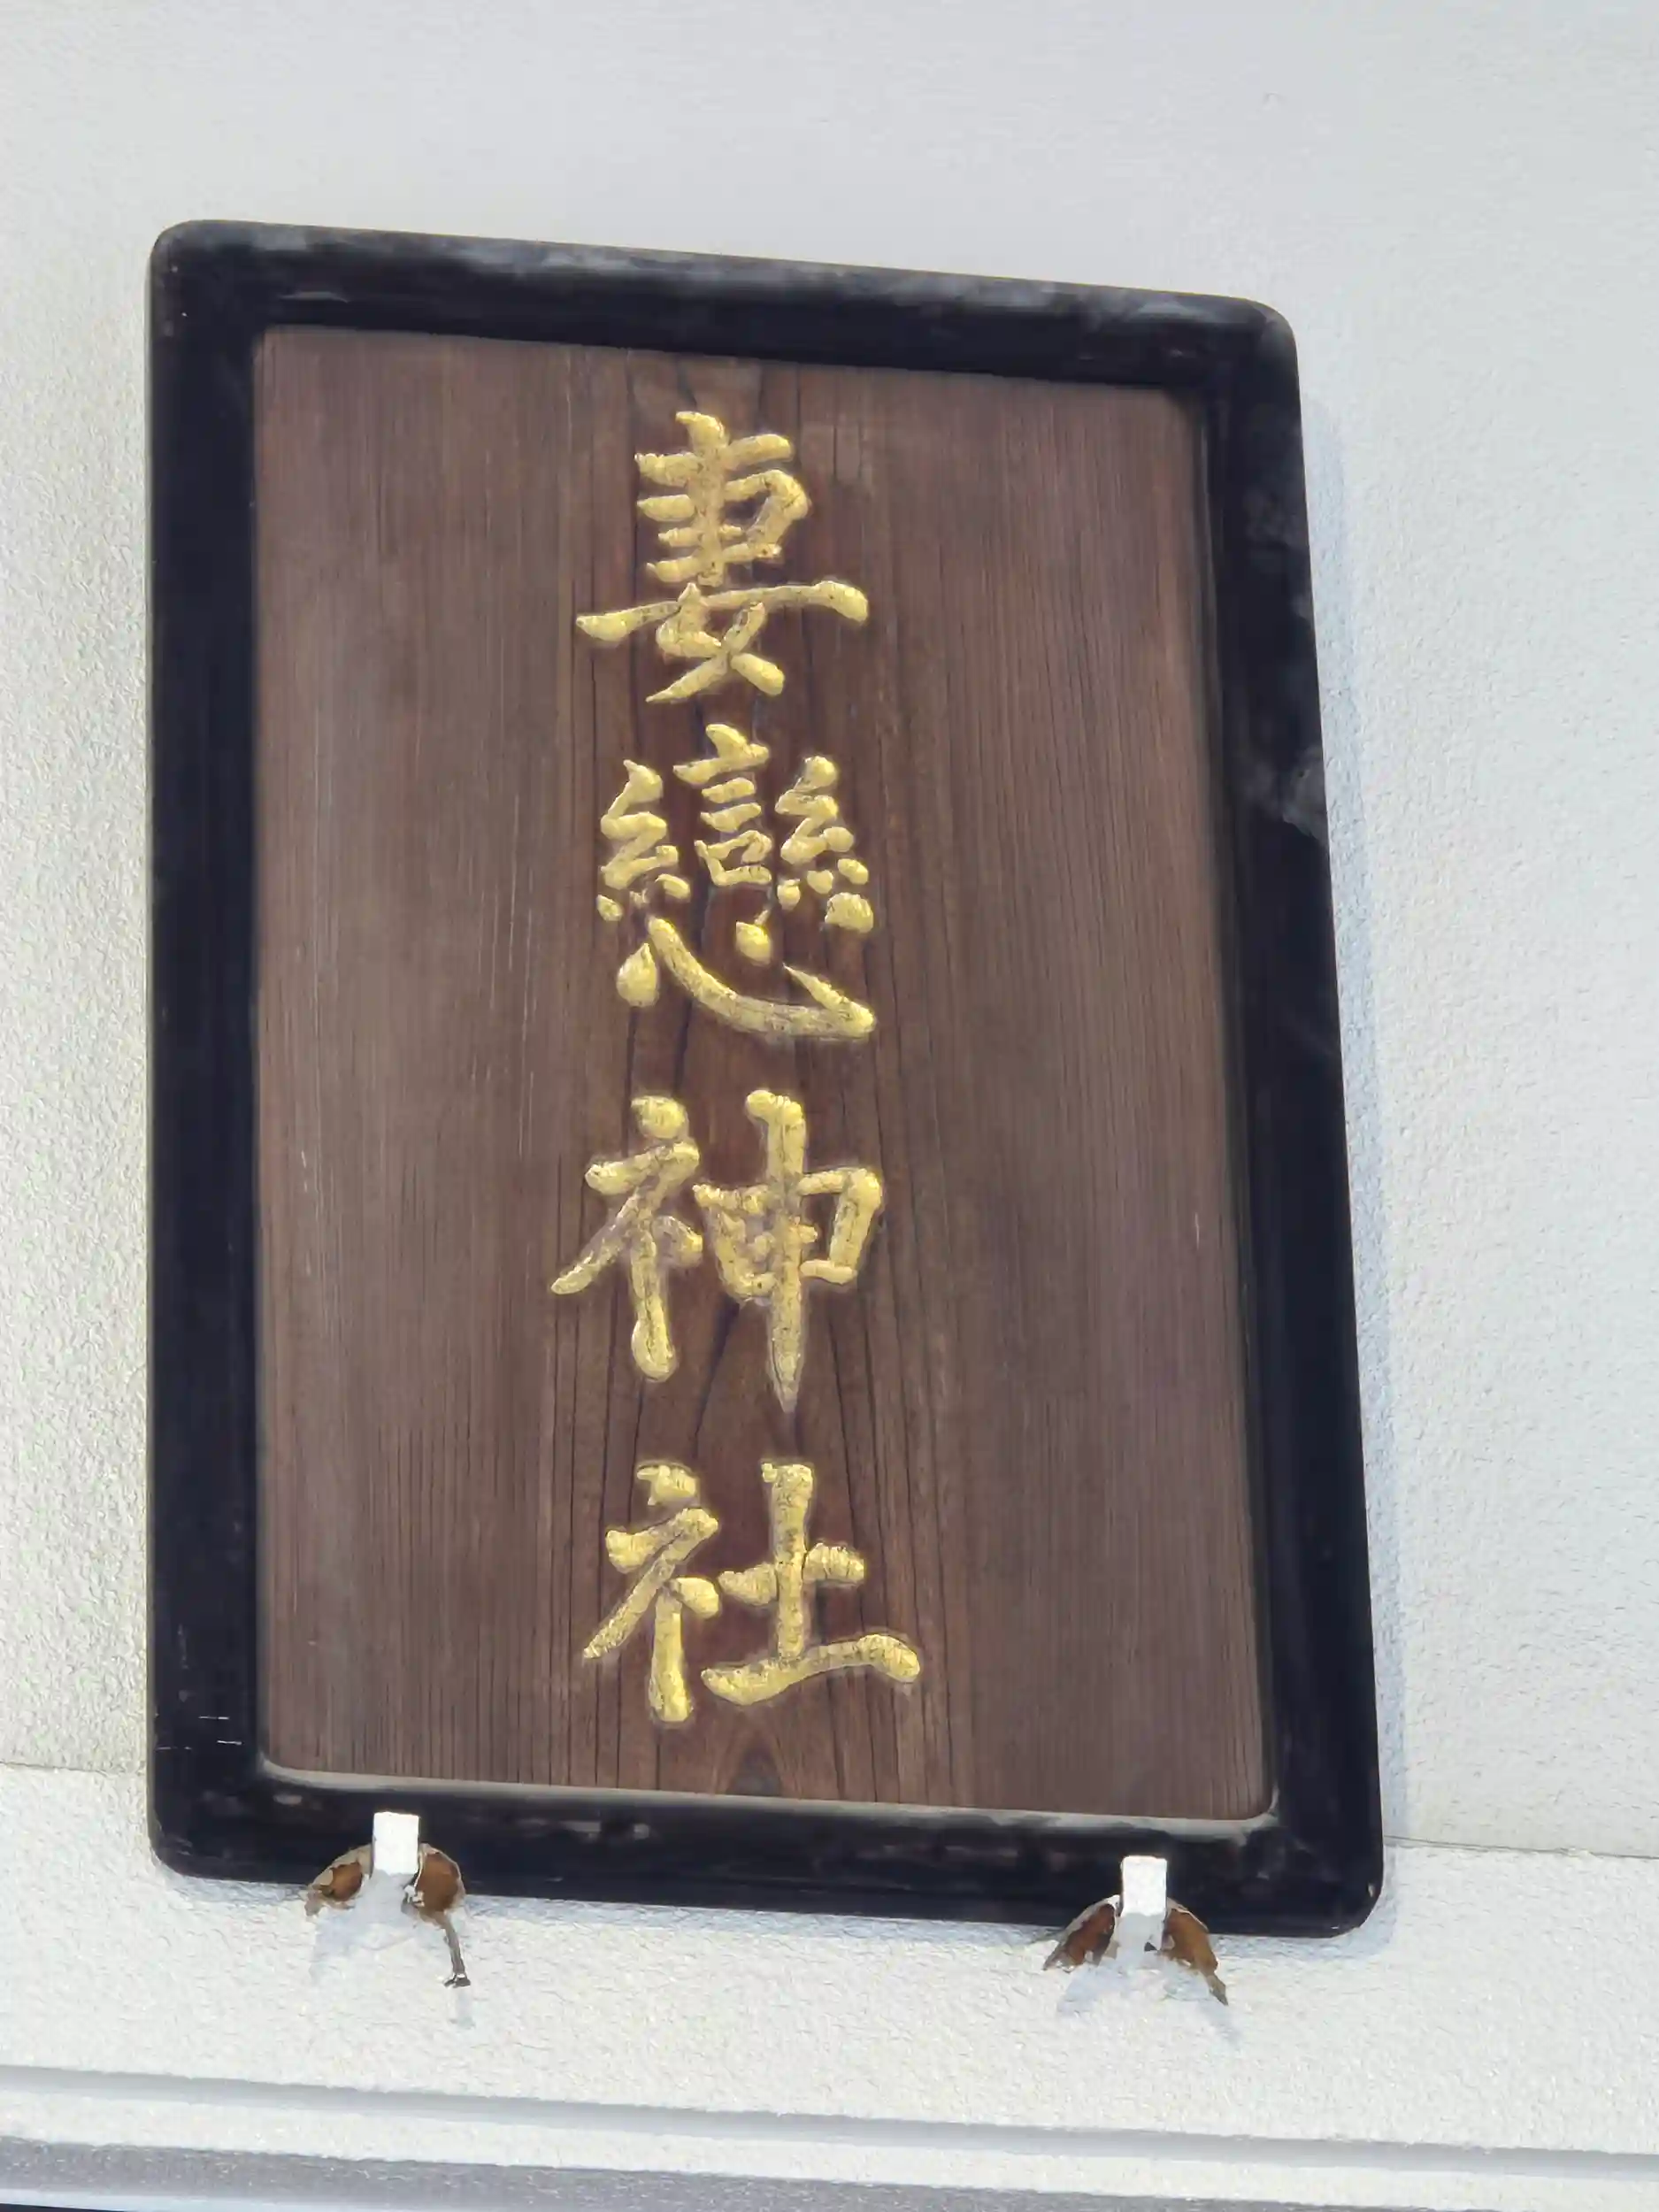 妻戀神社